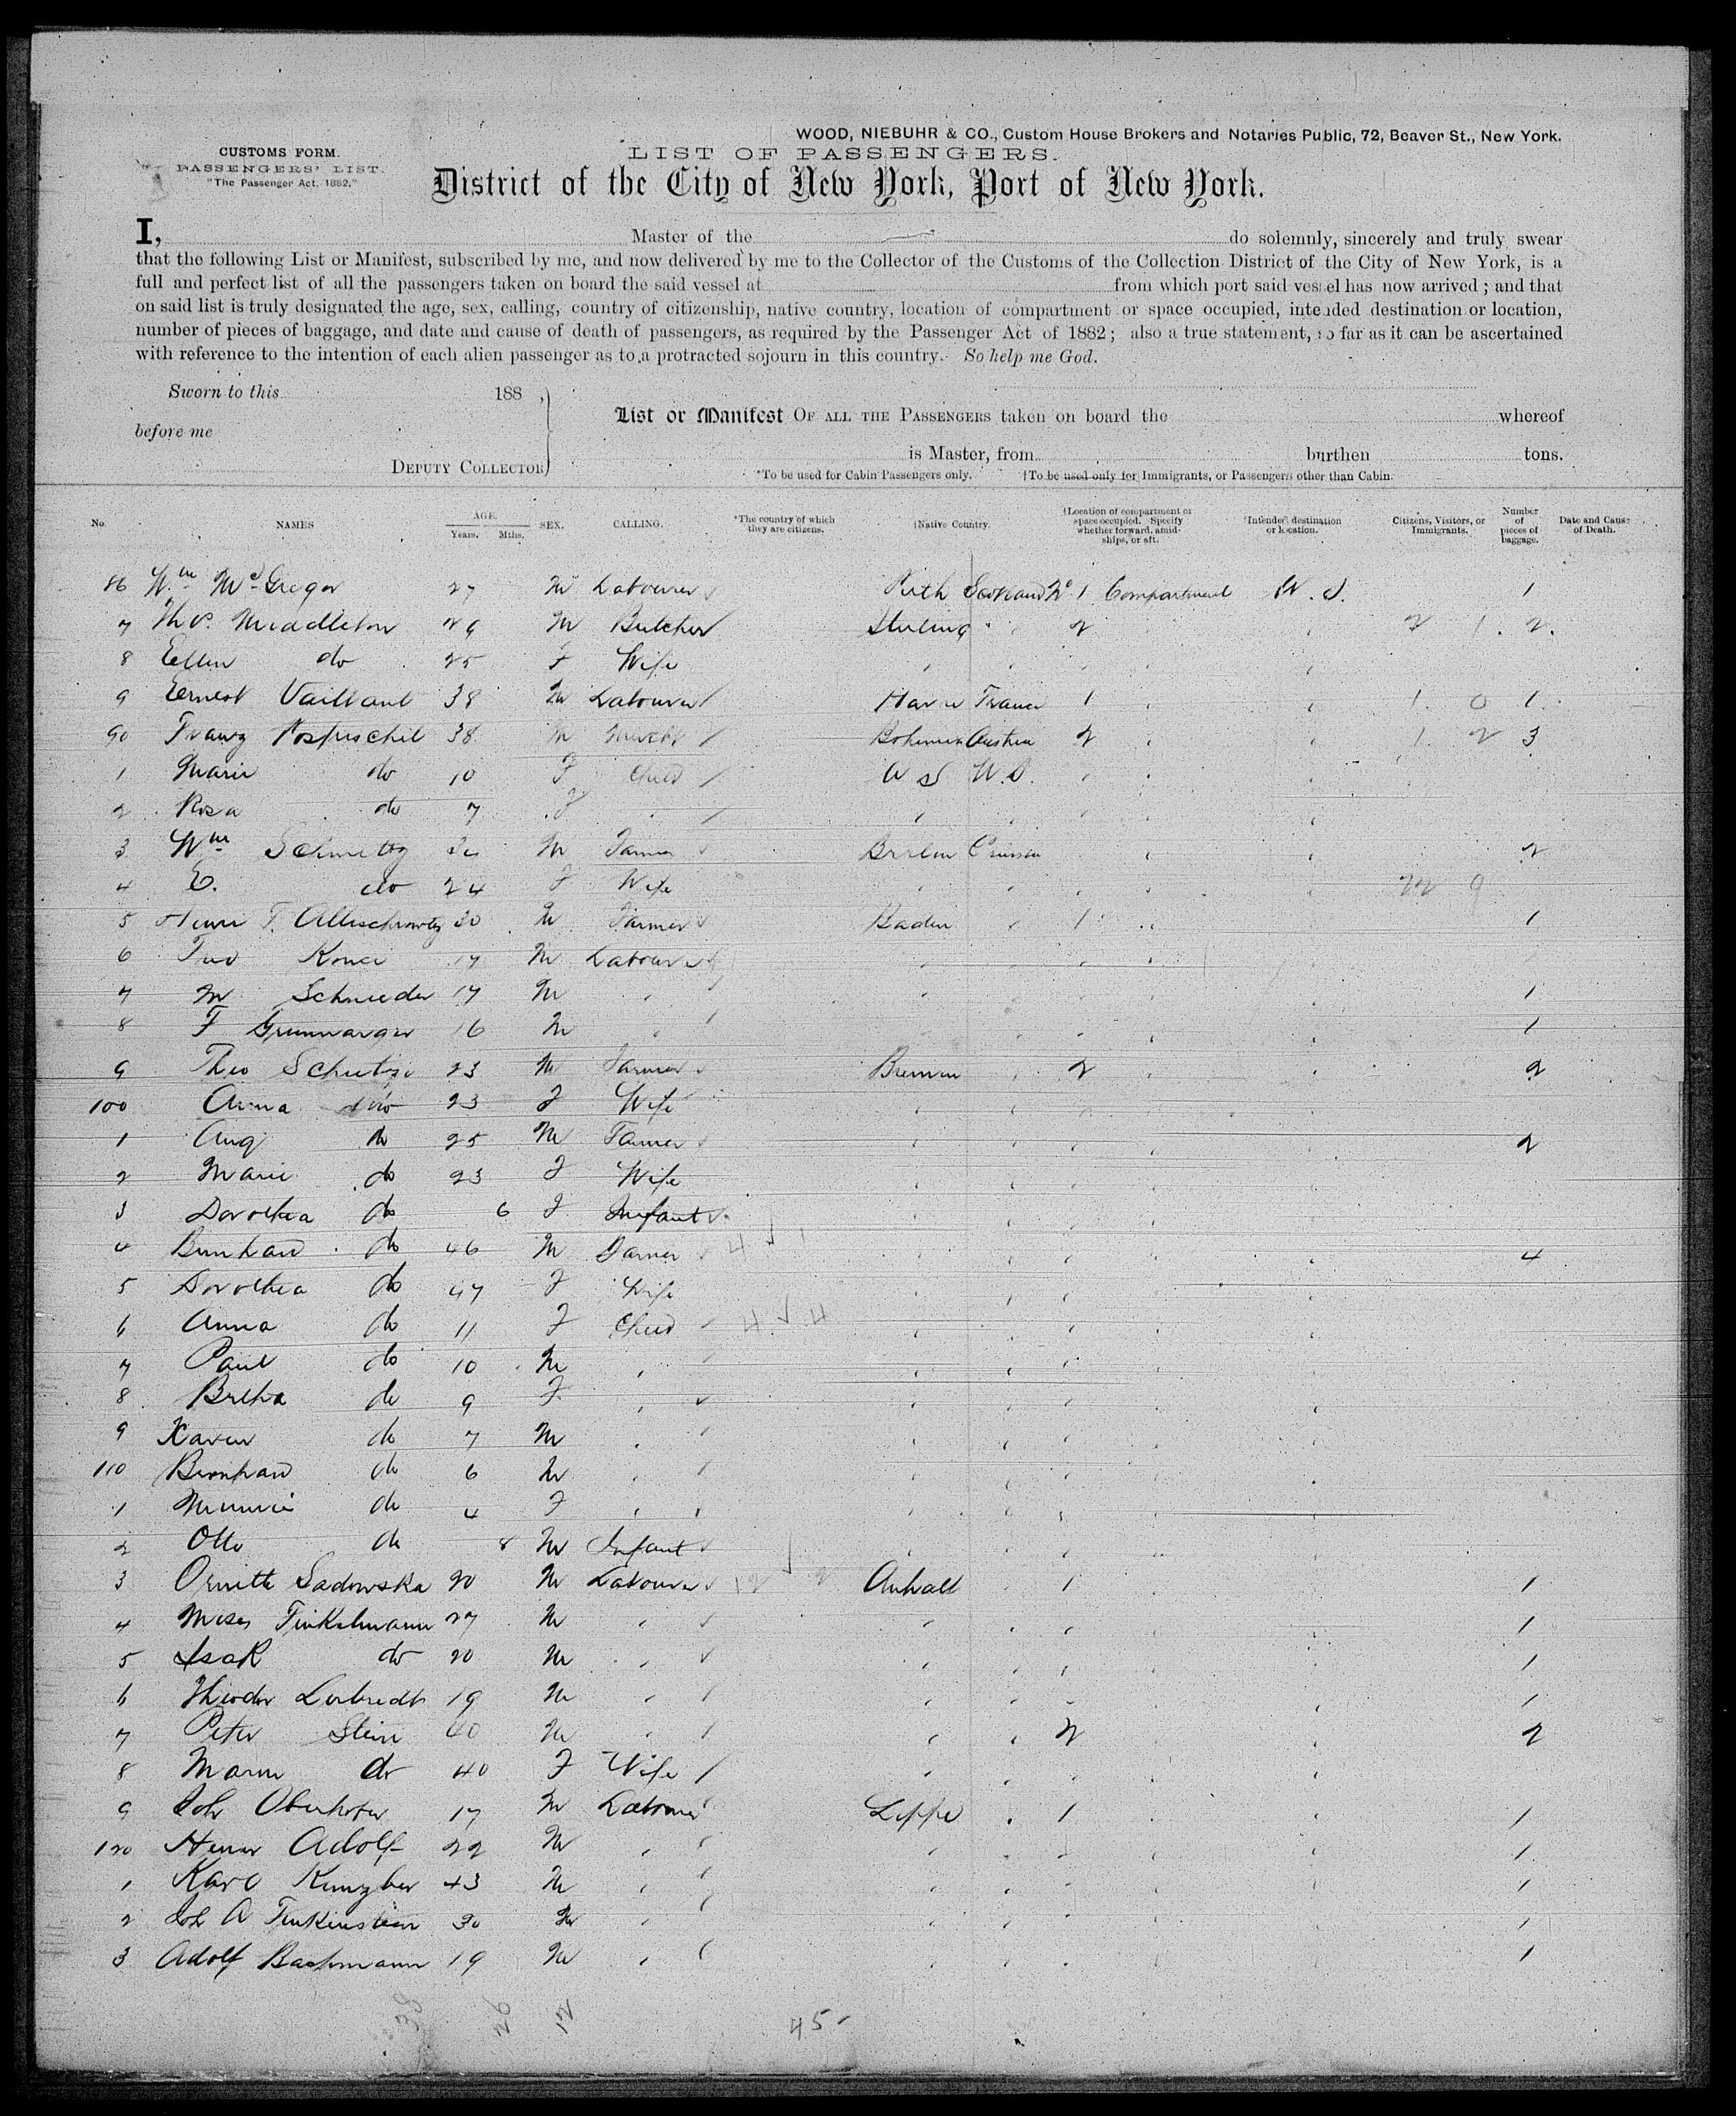 WOOD, NIEBUHR & CO., Custom House Brokers and Notaries Public, 72, Beaver St., New York.
CUSTOMS FORM.
PASSENGERS' LIST.
"The Passenger Act, 1882."
LIST OF PASSENGERS.
District of the City of New York, Port of New York.
I, Master of the do solemnly, sincerely and truly swear
that the following List or Manifest, subscribed by me, and now delivered by me to the Collector of the Customs of the Collection District of the City of New York, is a
full and perfect list of all the passengers taken on board the said vessel at from which port said vessel has now arrived; and that
on said list is truly designated the age, sex, calling, country of citizenship, native country, location of compartment or space occupied, intended destination or location,
number of pieces of baggage, and date and cause of death of passengers, as required by the Passenger Act of 1882; also a true statement, so far as it can be ascertained
with reference to the intention of each alien passenger as to a protracted sojourn in this country. So help me God.
Sworn to this 188 ,
before me
DEPUTY COLLECTOR
List or Manifest OF ALL THE PASSENGERS taken on board the whereof
is Master, from burthen tons.
*To be used for Cabin Passengers only. †To be used only for Immigrants, or Passengers other than Cabin.
No. NAMES AGE. Years. Mths. SEX. CALLING. *The country of which they are citizens. †Native Country. †Location of compartment or space occupied. Specify whether forward, amidships, or aft. Intended destination or location. Citizens, Visitors, or Immigrants. Number of pieces of baggage. Date and Cause of Death.
86 Wm McGregor 27 M Labourer Scotland No 1 Compartment 1
7 Thos. Middleton 29 M Butcher Stirling " 2 2 1. 2.
8 Ellen do 25 F Wife
9 Ernest Vaillant 38 M Labourer Havre France 1 1. 0 1.
90 Franz Pospischil 38 M Bohemia Austria 2 1. 2 3
1 Marie do 10 F Child
2 Rosa do 7 F
3 Wm M Farmer Berlin Prussia 2
4 E. do 24 F Wife 22 9
5 30 M Farmer Baden 1 1
6 17 M Labourer
7 M Schneider 17 M 1
8 F 16 M 1
9 Theo Schutze 23 M Farmer Bremen 2 2
100 Anna do 23 F Wife
1 Aug do 25 M Farmer 2
2 Marie do 23 F Wife
3 Dorothea do 6 F Infant
4 Bernhard do 46 M Farmer 4
5 Dorothea do 47 F Wife
6 Anna do 11 F Child
7 Paul do 10 M
8 Bertha do 9 F
9 Xaver do 7 M
110 Bernhard do 6 M
1 Minnie do 4 F
2 Otto do 8 M Infant
3 Sadowska 20 M Labourer 12 2 Anhalt 1 1
4 Moses Finkelmann 27 M 1
5 Isak do 20 M 1
6 Theodor 19 M 1
7 Peter Stein 40 M 2 2
8 do 40 F Wife
9 Joh Oberhofer 17 M Labourer Lippe 1 1
120 Adolf 22 M 1
1 Karl 43 M 1
2 Joh A Finkenstein 30 M 1
3 Adolf Bachmann 19 M 1
38 26 12 45